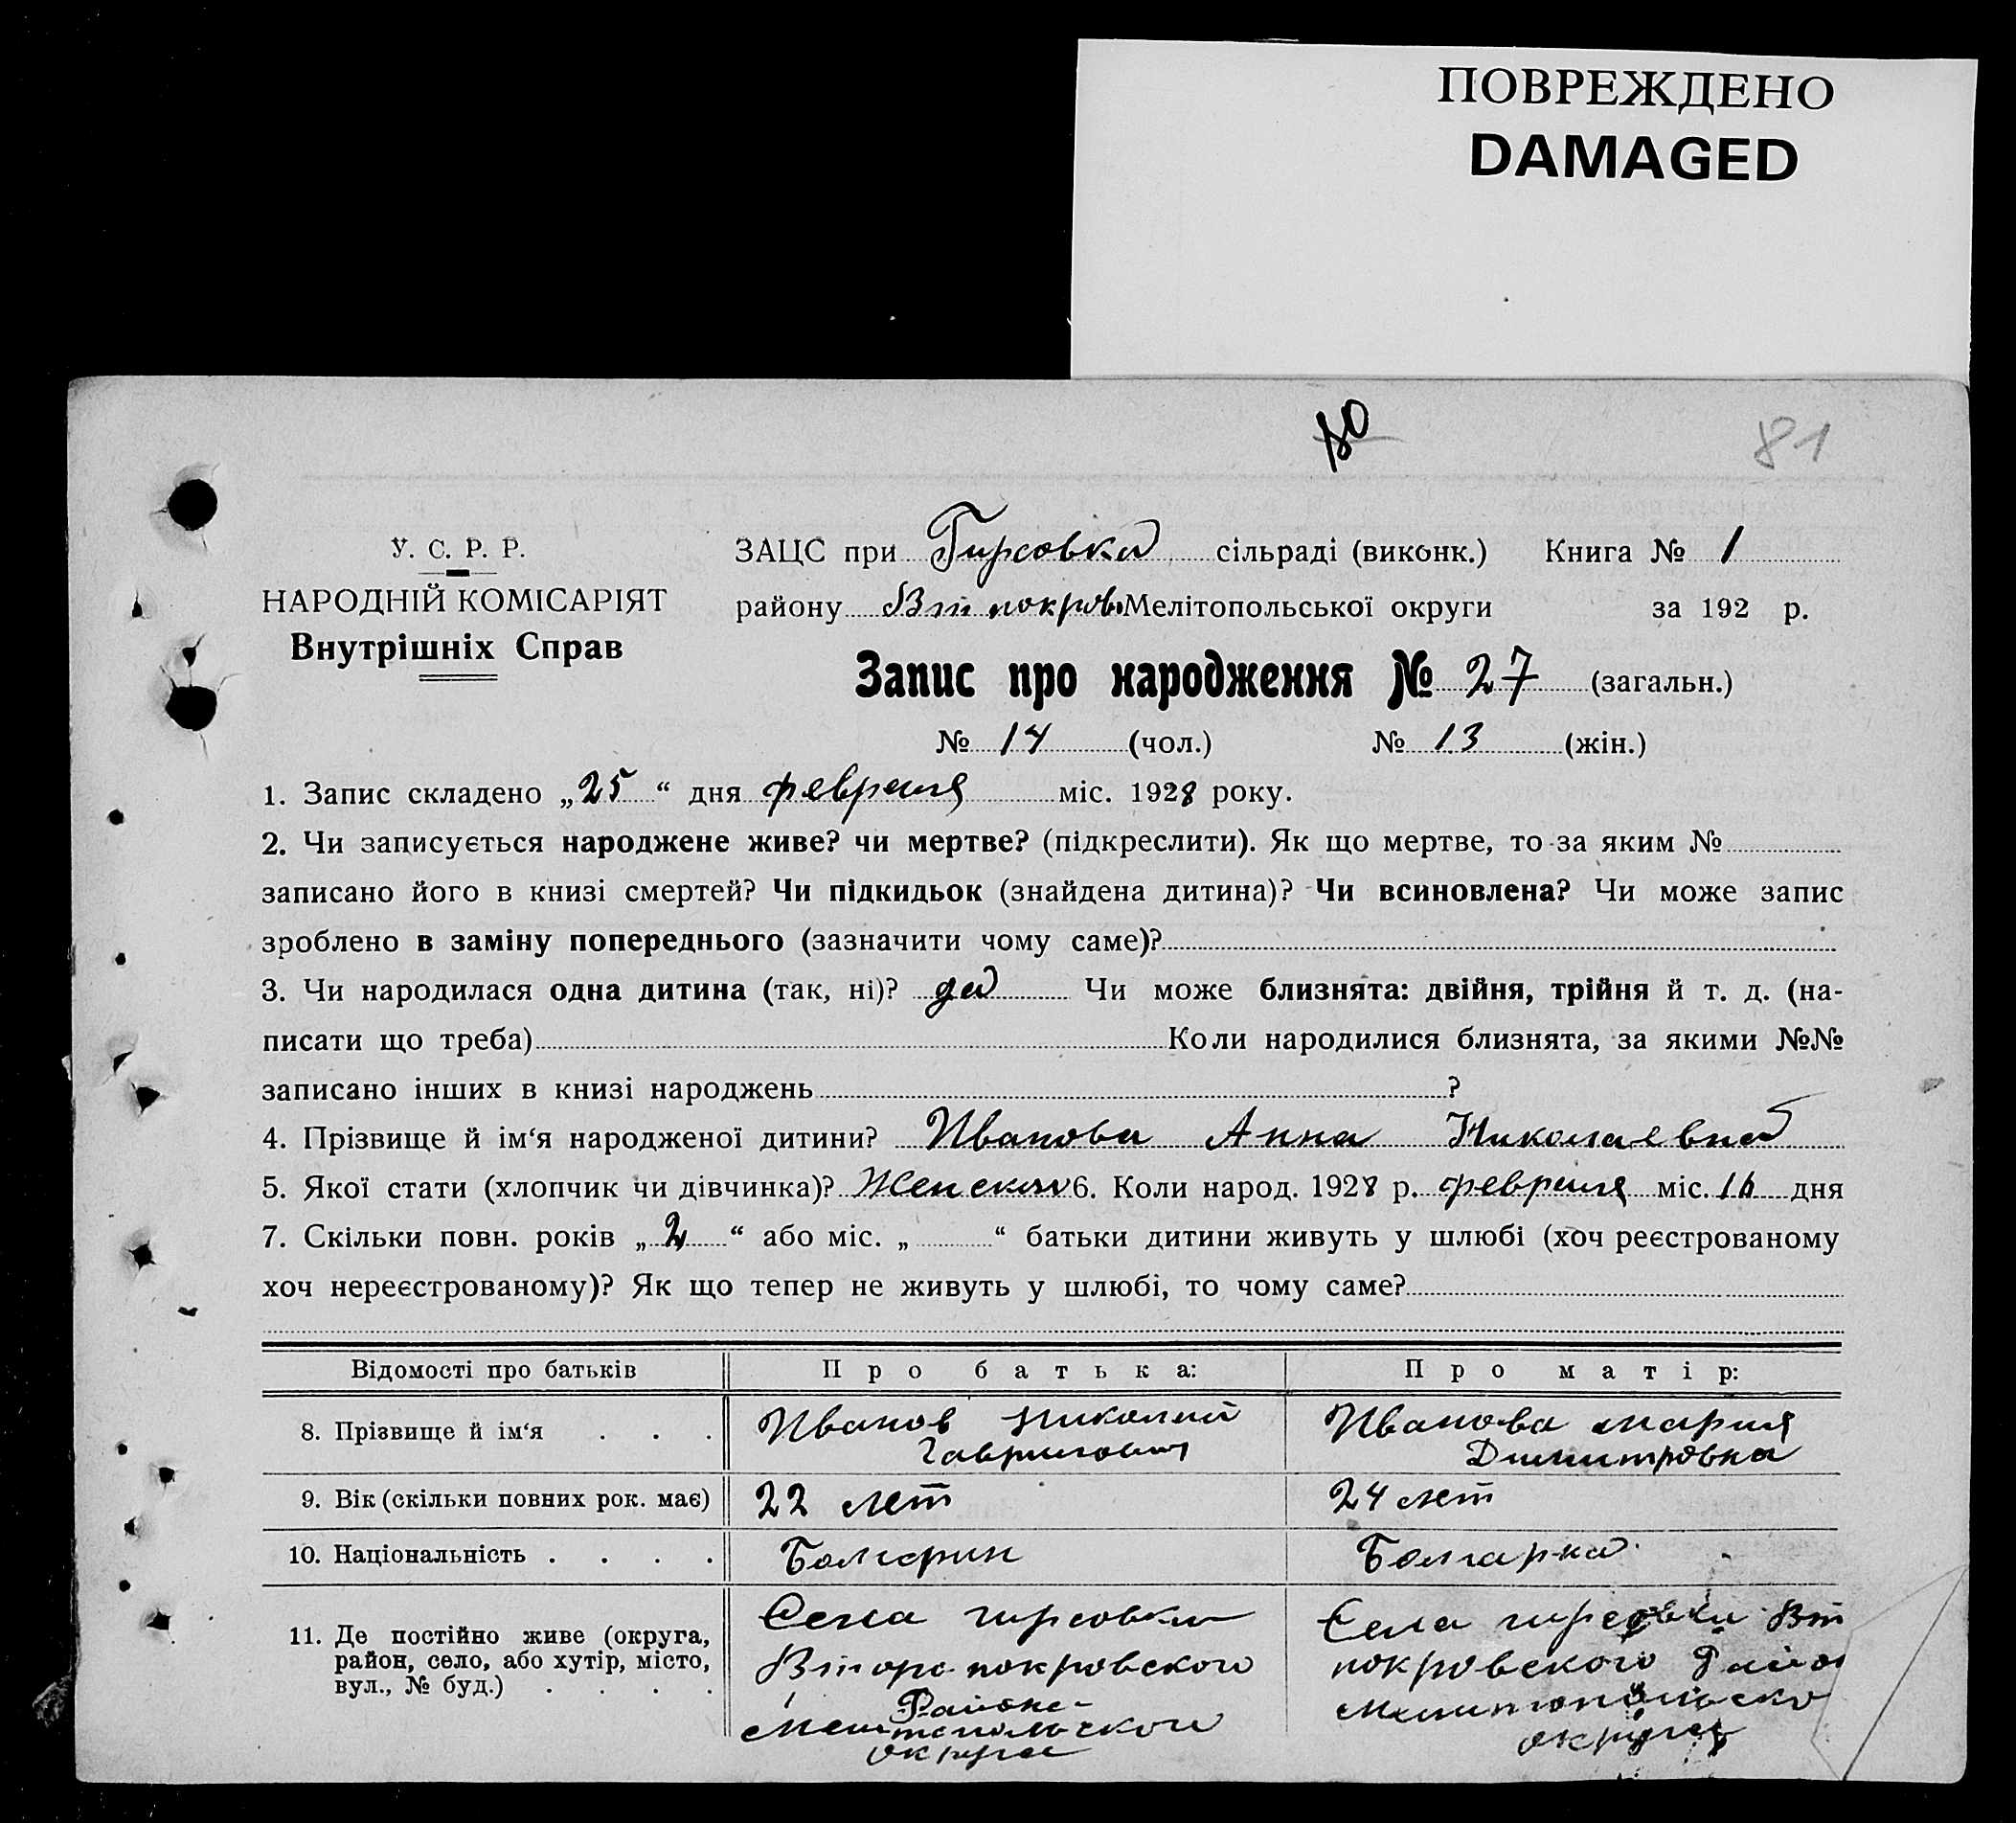 ПОВРЕЖДЕНО
DAMAGED
80
81
У. С. Р. Р.
НАРОДНІЙ КОМІСАРІЯТ
Внутрішніх Справ
ЗАЦС при Гирсовка сільраді (виконк.) Книга № 1
району Вт покров Мелітопольської округи за 192 р.
Запис про народження № 27 (загальн.)
№ 14 (чол.) № 13 (жін.)
1. Запис складено „25“ дня февраля міс. 1928 року.
2. Чи записується народжене живе? чи мертве? (підкреслити). Як що мертве, то за яким №
записано його в книзі смертей? Чи підкидьок (знайдена дитина)? Чи всиновлена? Чи може запис
зроблено в заміну попереднього (зазначити чому саме)?
3. Чи народилася одна дитина (так, ні)? да Чи може близнята: двійня, трійня й т. д. (на-
писати що треба) Коли народилися близнята, за якими №№
записано інших в книзі народжень ?
4. Прізвище й ім‘я народженої дитини? Иванова Анна Николаевна
5. Якої стати (хлопчик чи дівчинка)? Женском 6. Коли народ. 1928 р. февраля міс. 16 дня
7. Скільки повн. років „2“ або міс. „ “ батьки дитини живуть у шлюбі (хоч реєстрованому
хоч нереєстрованому)? Як що тепер не живуть у шлюбі, то чому саме?
Відомості про батьків Про батька: Про матір:
8. Прізвище й ім‘я . . . Иванов Николай Гаврилович Иванова Мария Димитровна
9. Вік (скільки повних рок. має) 22 лет 24 лет
10. Національність . . . . Болгарин Болгарка
11. Де постійно живе (округа, район, село, або хутір, місто, вул., № буд.) . . . .
Села гирсовки
Второ покровского
Района
мелитопольского
округа
Села гирсовки Вт
покровского Район
мелитопольско
округа